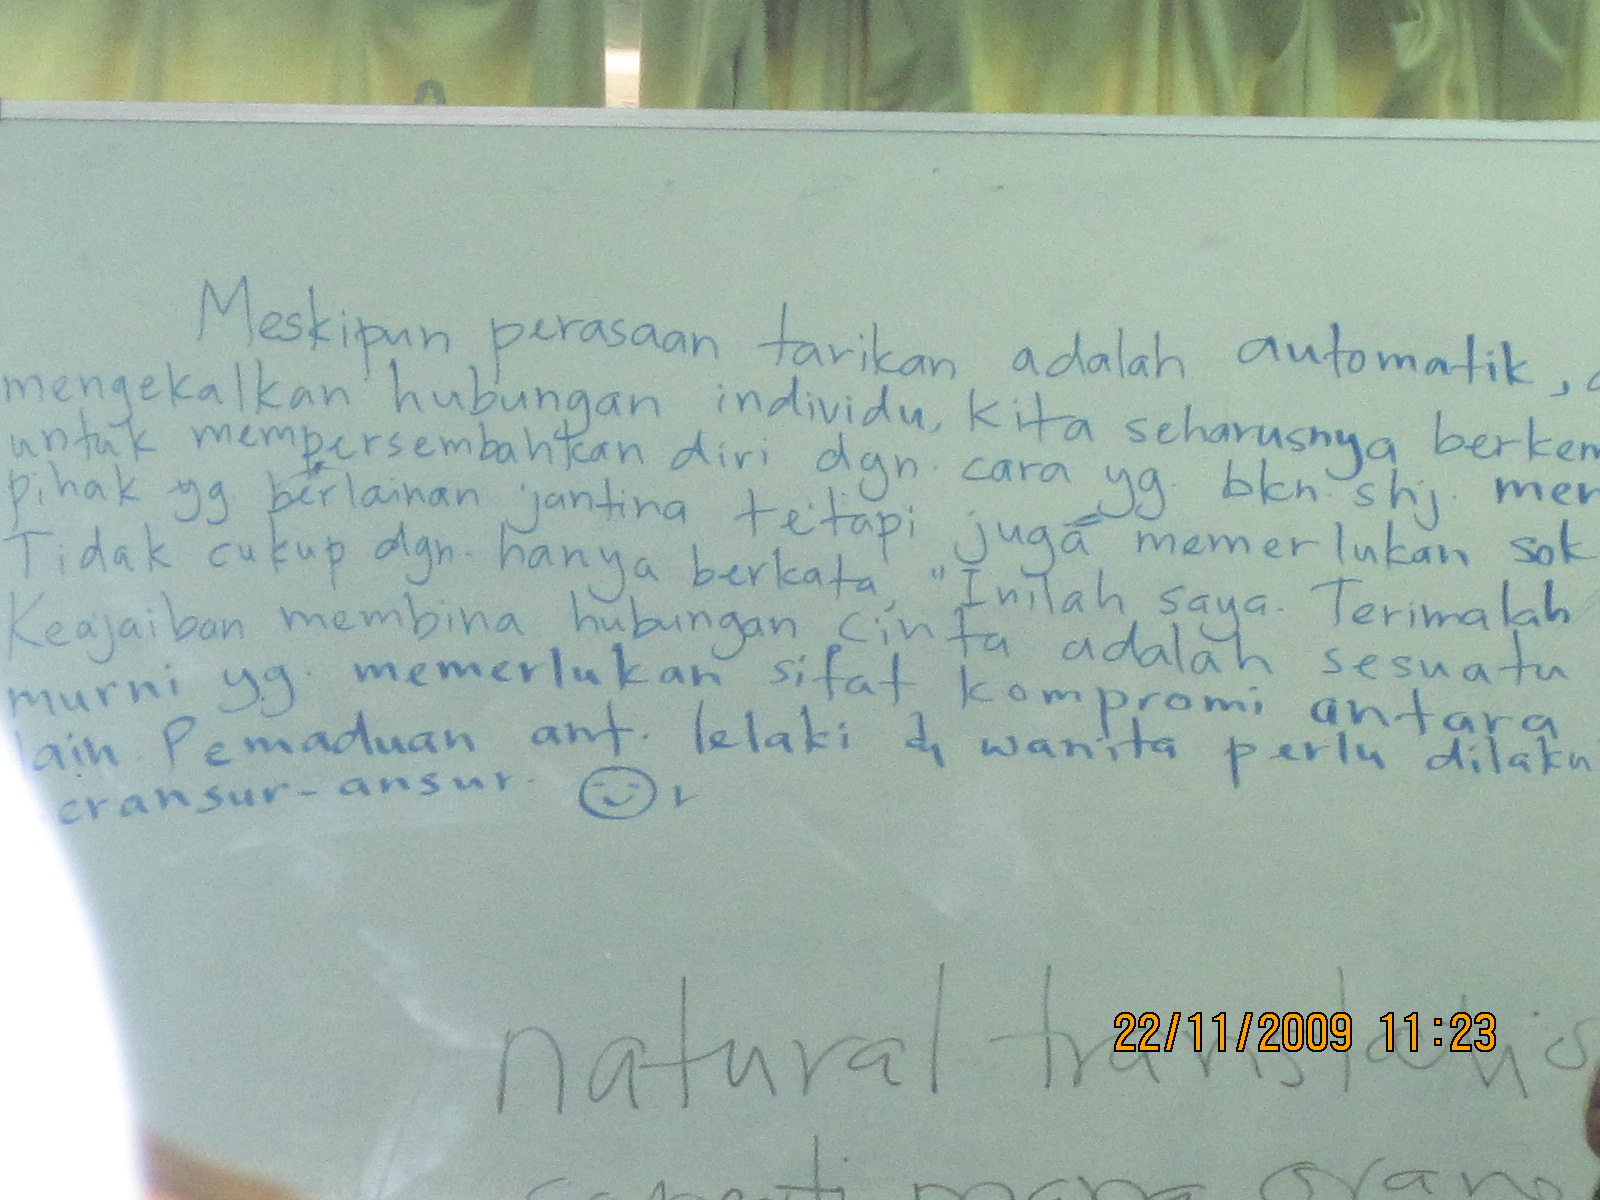 Meskipun perasaan tarikan adalah automatik,
mengekalkan hubungan individu, kita seharusnya berkem
untuk mempersembahkan diri dgn. cara yg. bkn. shj. mer
pihak yg berlainan jantina tetapi juga memerlukan sok
Tidak cukup dgn. hanya berkata, "Inilah saya. Terimalah
Keajaiban membina hubungan cinta adalah sesuatu
murni yg. memerlukan sifat kompromi antara
lain. Pemaduan ant. lelaki & wanita perlu dilaku
eransur-ansur.
natural translatio
22/11/2009 11:23
seperti mana orang